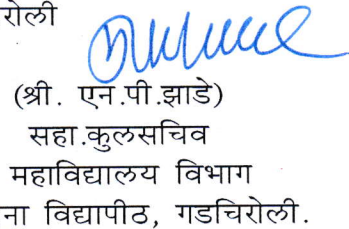 रोली
(श्री. एन.पी.झाडे)
सहा.कुलसचिव
महाविद्यालय विभाग
ना विद्यापीठ, गडचिरोली.